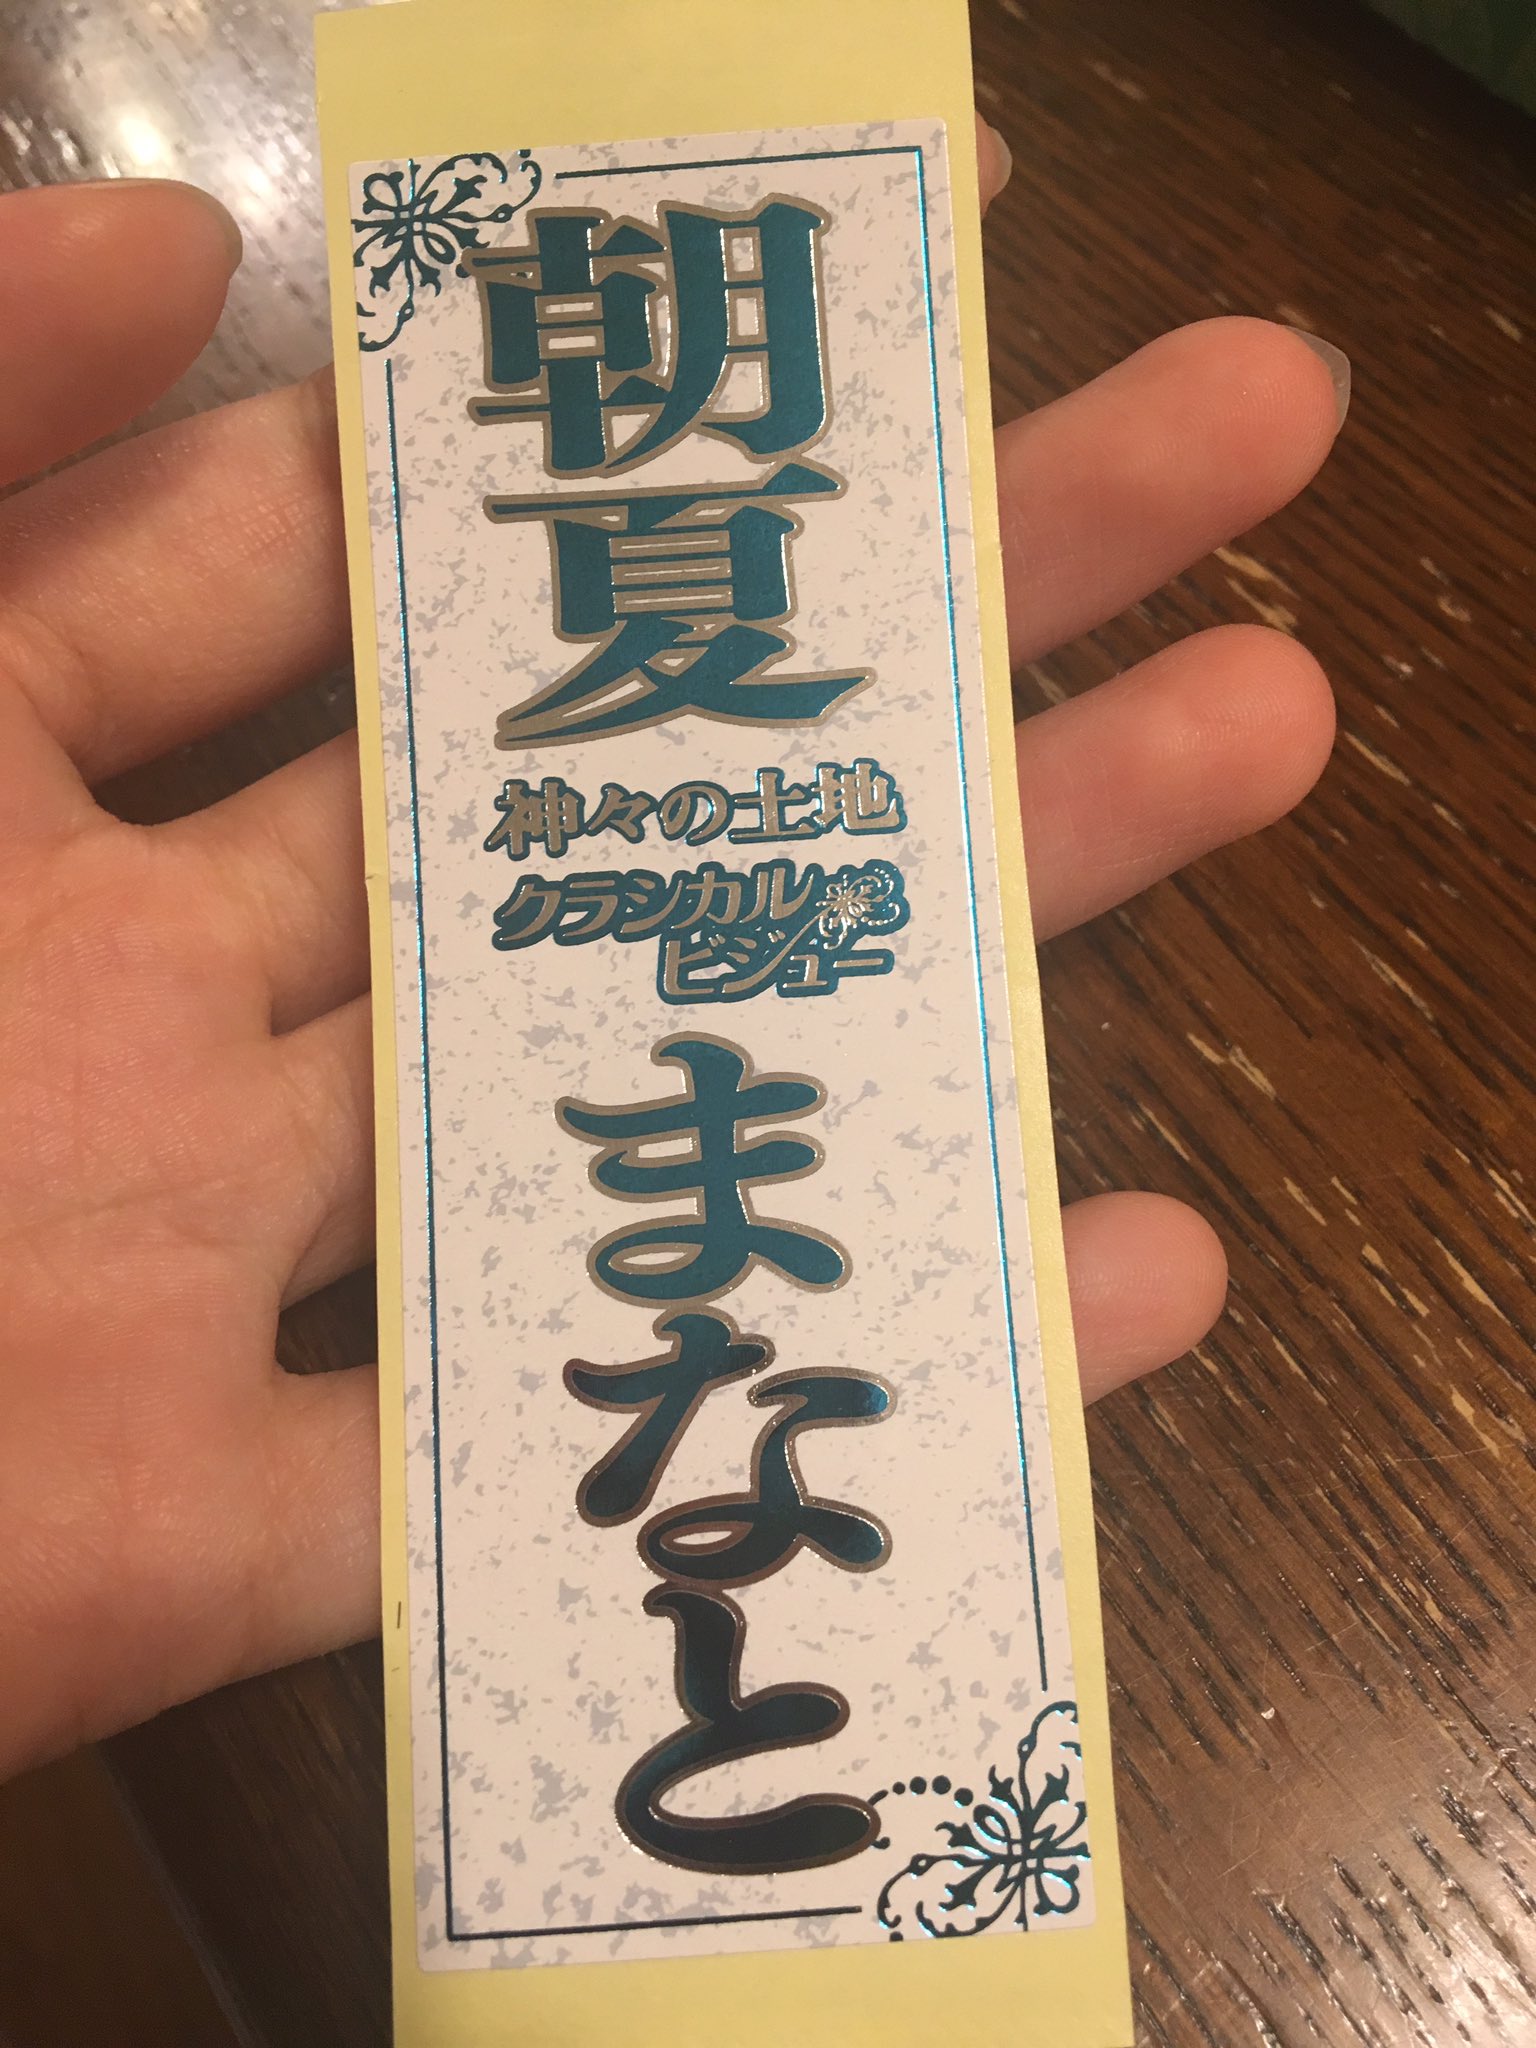 朝夏
神々の土地
クラシカル
ビジュー
まなと